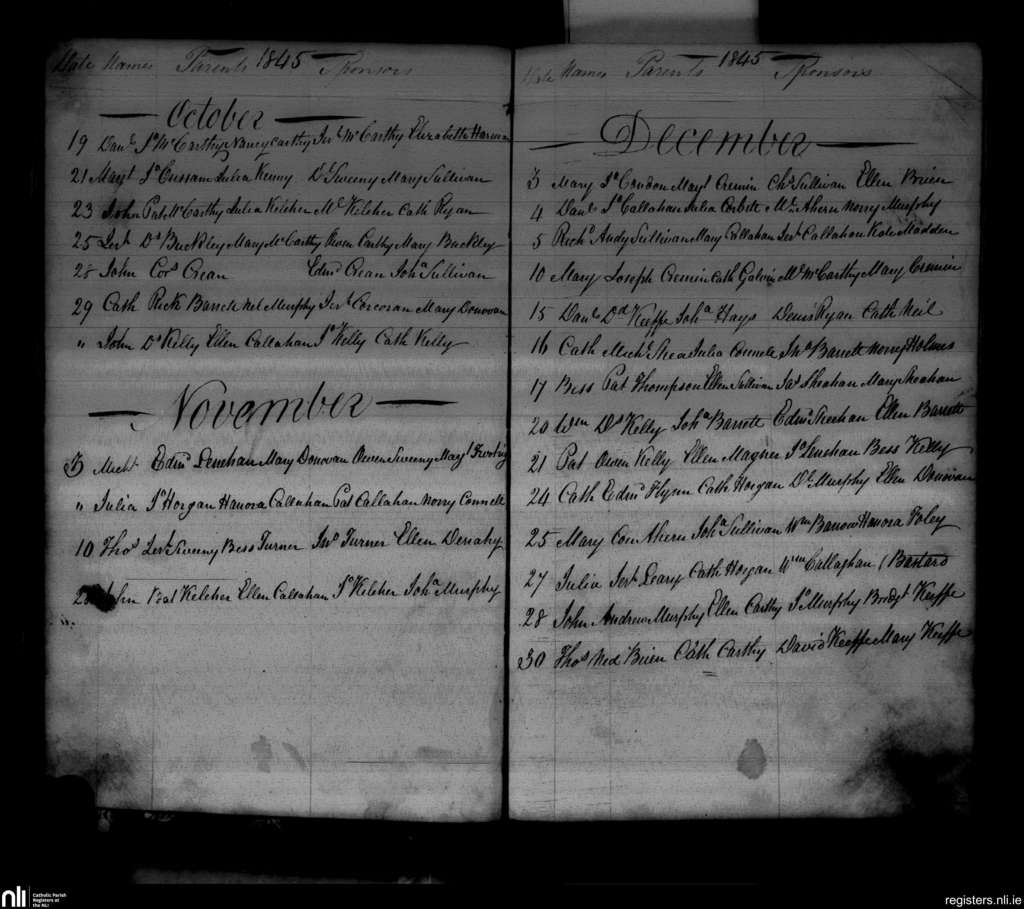 Date Names Parents 1845 Sponsors
October
19 Danl Js McCarthy Nancy Carthy Jert McCarthy Elizabeth Harman
21 Mayt Js Cussam Julia Kenny Dl Sweeny Mary Sullivan
23 John Pat McCarthy Julia Kelcher Ml Kelcher Cath Ryan
25 Jert Ds Buckley Mary McCarthy Owen Carthy Mary Buckley
28 John Cors Crean Edmd Crean Joha Sullivan
29 Cath Rick Barrett Nel Murphy Jert Corcoran Mary Donovan
" John Ds Kelly Ellen Callahan Js Kelly Cath Kelly
November
3 Michl Edmd Lenehan Mary Donovan Owen Sweeny Mayt
" Julia Js Horgan Hanora Callahan Pat Callahan Norry Connell
10 Thos Jert Sweeny Bess Turner Jas Turner Ellen Denahy
John Pat Kelcher Ellen Callahan Js Kelcher Joha Murphy
Date Names Parents 1845 Sponsors
December
3 Mary Js Condon Mayt Cremin Chs Sullivan Ellen Brien
4 Danl Js Callahan Julia Corbett Wm Ahern Norry Murphy
5 Richd Andy Sullivan Mary Callahan Jert Callahan Kate Madden
10 Mary Joseph Cremin Cath Galvin Ml McCarthy Mary Cremin
15 Danl Dd Keeffe Joha Hays Denis Ryan Cath Neil
16 Cath Michl Shea Julia Connell Jno Barrett Norry Holmes
17 Bess Pat Thompson Ellen Sullivan Jas Sheahan Mary Sheahan
20 Wm Ds Kelly Joha Barrett Edmd Sheehan Ellen Barrett
21 Pat Owen Kelly Ellen Magner Js Linehan Bess Kelly
24 Cath Edmd Flynn Cath Horgan Dl Murphy Ellen Donovan
25 Mary Con Ahern Joha Sullivan Wm Barrow Hanora Foley
27 Julia Jert Leary Cath Horgan Wm Callaghan (Bastard
28 John Andrew Murphy Ellen Carthy Js Murphy Bridgt Keeffe
30 Thos Ned Brien Cath Carthy David Keeffe Mary Keeffe
nli Catholic Parish Registers at the NLI
registers.nli.ie